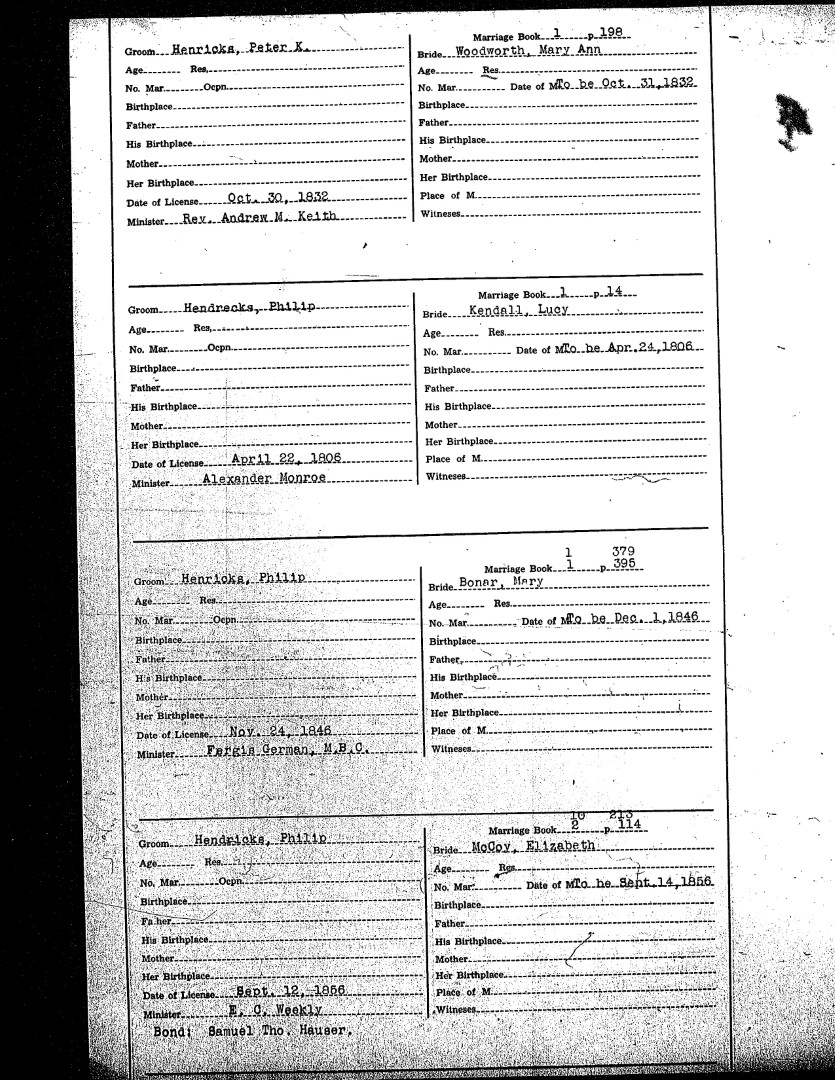 Marriage Book 1 p. 198
Groom Henricks, Peter K. Bride Woodworth, Mary Ann
Age Res. Age Res.
No. Mar. Ocpn. No. Mar. Date of M To be Oct. 31, 1832
Birthplace Birthplace
Father Father
His Birthplace His Birthplace
Mother Mother
Her Birthplace Her Birthplace
Date of License Oct. 30, 1832 Place of M.
Minister Rev. Andrew M. Keith Witneses
Marriage Book 1 p. 14
Groom Hendrecks, Philip Bride Kendall, Lucy
Age Res. Age Res.
No. Mar. Ocpn. No. Mar. Date of M To be Apr. 24, 1806
Birthplace Birthplace
Father Father
His Birthplace His Birthplace
Mother Mother
Her Birthplace Her Birthplace
Date of License April 22, 1806 Place of M.
Minister Alexander Monroe Witneses
1 379
Marriage Book 1 p. 395
Groom Henricks, Philip Bride Bonar, Mary
Age Res. Age Res.
No. Mar. Ocpn. No. Mar. Date of M To be Dec. 1, 1846
Birthplace Birthplace
Father Father
His Birthplace His Birthplace
Mother Mother
Her Birthplace Her Birthplace
Date of License Nov. 24, 1846 Place of M.
Minister Fergis German, M.B.C. Witneses
10 213
Marriage Book 2 p. 114
Groom Hendricks, Philip Bride McCoy, Elizabeth
Age Res. Age Res.
No. Mar. Ocpn. No. Mar. Date of M To be Sept. 14, 1856
Birthplace Birthplace
Father Father
His Birthplace His Birthplace
Mother Mother
Her Birthplace Her Birthplace
Date of License Sept. 12, 1856 Place of M.
Minister E. C. Weekly Witneses
Bond: Samuel Tho. Hauser.